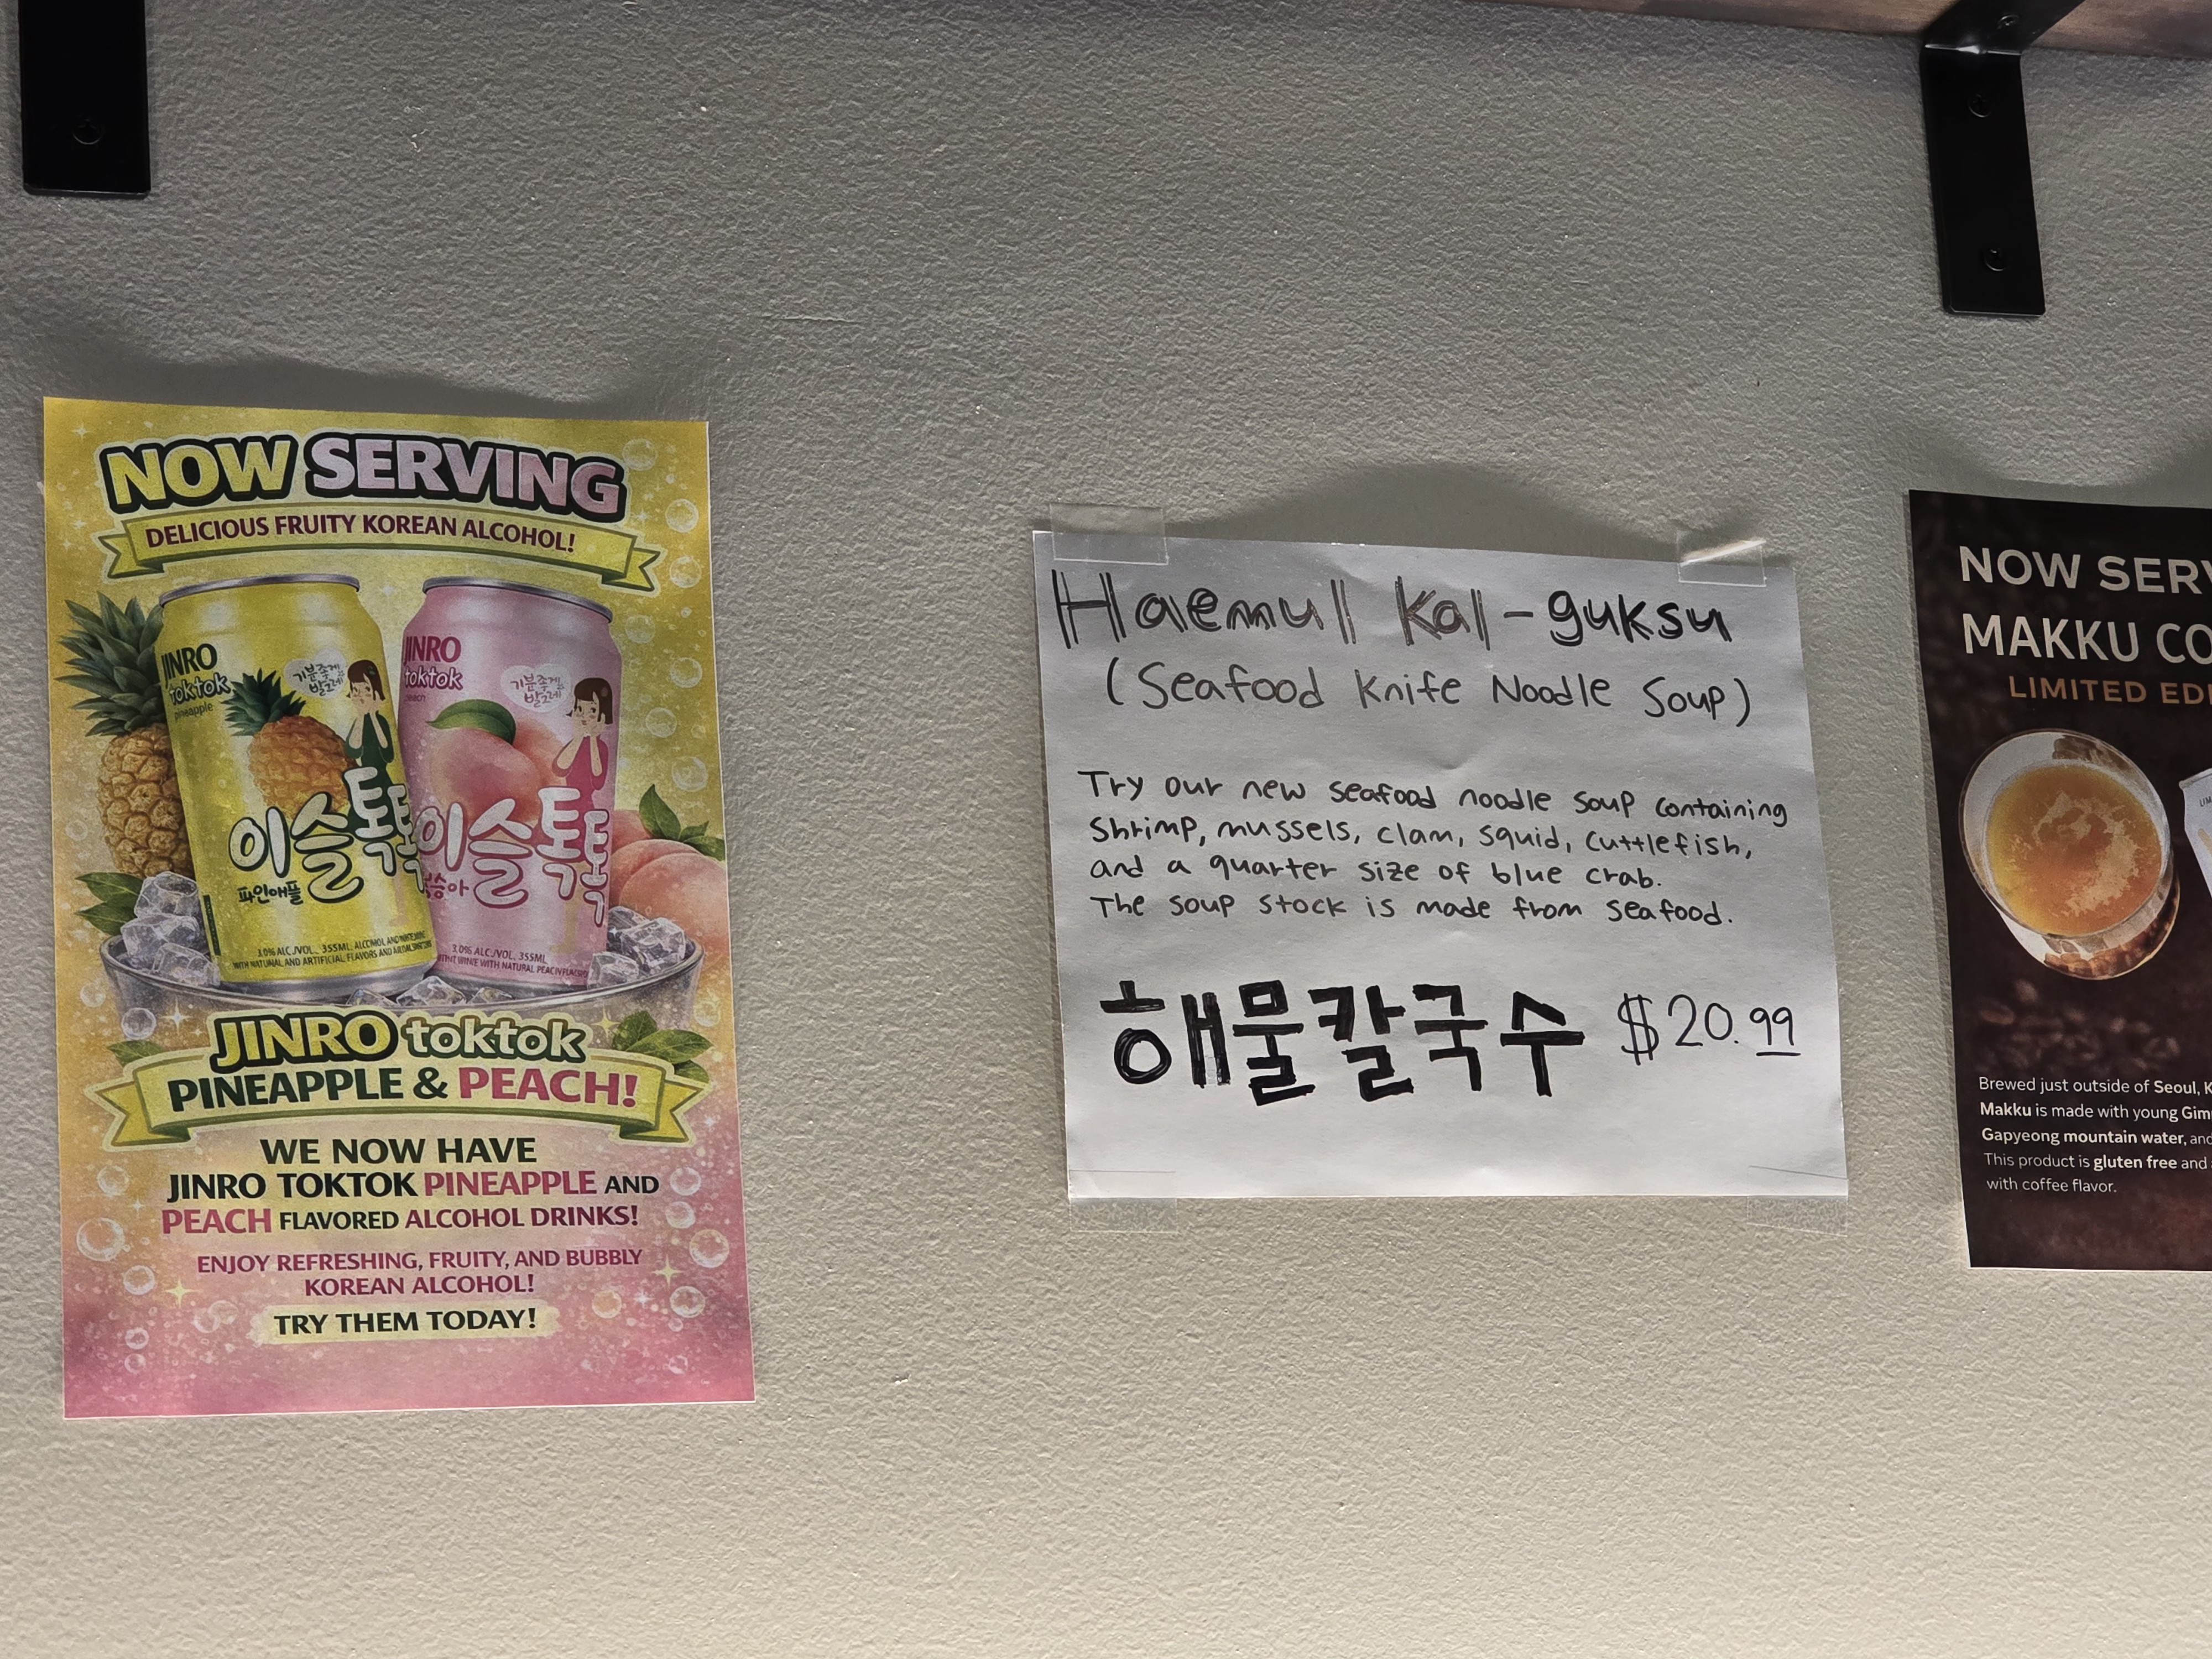 NOW SERVING
DELICIOUS FRUITY KOREAN ALCOHOL!
JINRO
toktok
pineapple
기분좋게
발그레
이슬톡톡
파인애플
3.0% ALC./VOL., 355ML,
WITH NATURAL AND ARTIFICIAL FLAVORS AND
JINRO
toktok
peach
기분좋게
발그레
이슬톡톡
3.0% ALC./VOL, 355ML
WITH NATURAL
JINRO toktok
PINEAPPLE & PEACH!
WE NOW HAVE
JINRO TOKTOK PINEAPPLE AND
PEACH FLAVORED ALCOHOL DRINKS!
ENJOY REFRESHING, FRUITY, AND BUBBLY
KOREAN ALCOHOL!
TRY THEM TODAY!
Haemull Kal-guksu
(Seafood Knife Noodle Soup)
Try our new seafood noodle soup containing
Shrimp, mussels, clam, squid, cuttlefish,
and a quarter size of blue crab.
The soup stock is made from seafood.
해물칼국수 $20.99
NOW SERV
MAKKU CO
LIMITED EDI
Brewed just outside of Seoul, K
Makku is made with young Gim
Gapyeong mountain water, and
This product is gluten free and
with coffee flavor.